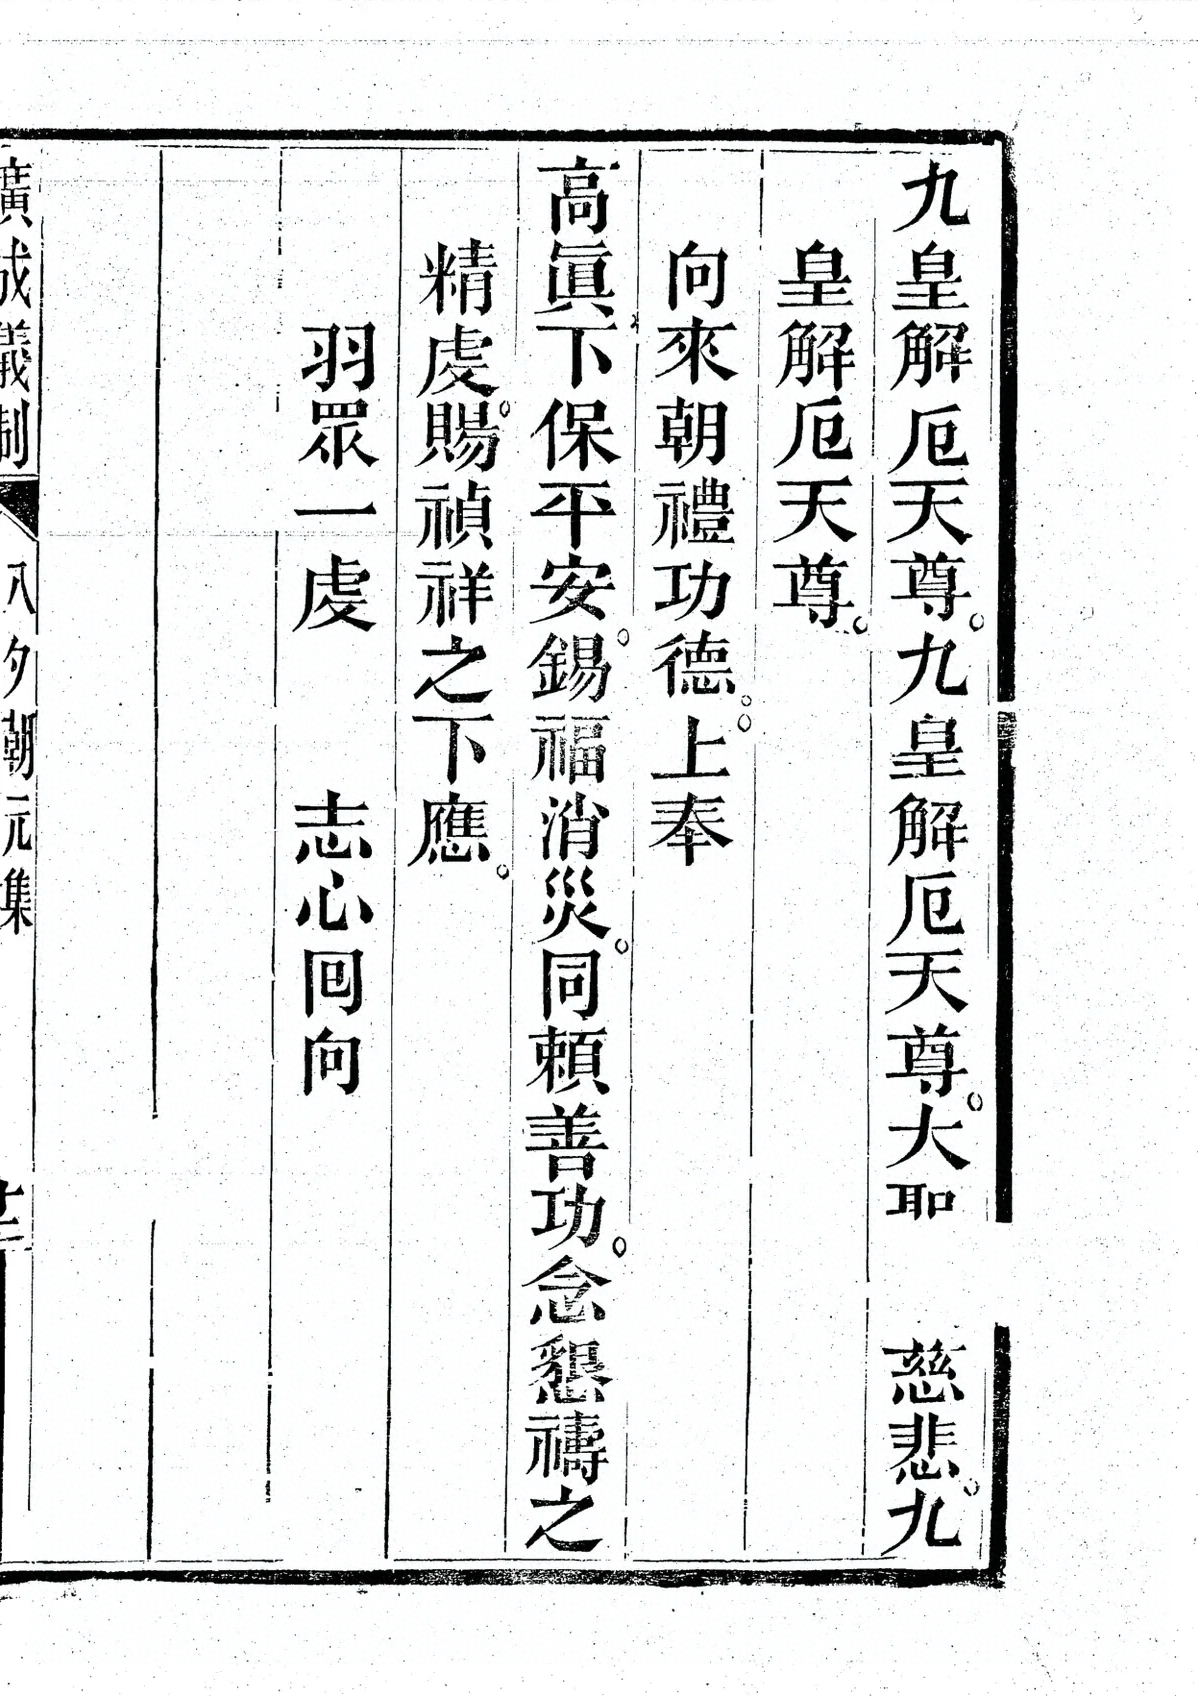 九皇解厄天尊。九皇解厄天尊。大聖慈悲。九
皇解厄天尊。
向來朝禮功德。。上奉
高眞下保平安。錫福消災。同賴善功。念懇禱之
精虔。賜禎祥之下應。
羽眾一處　志心回向
廣成儀制　八夕朝元集　十二